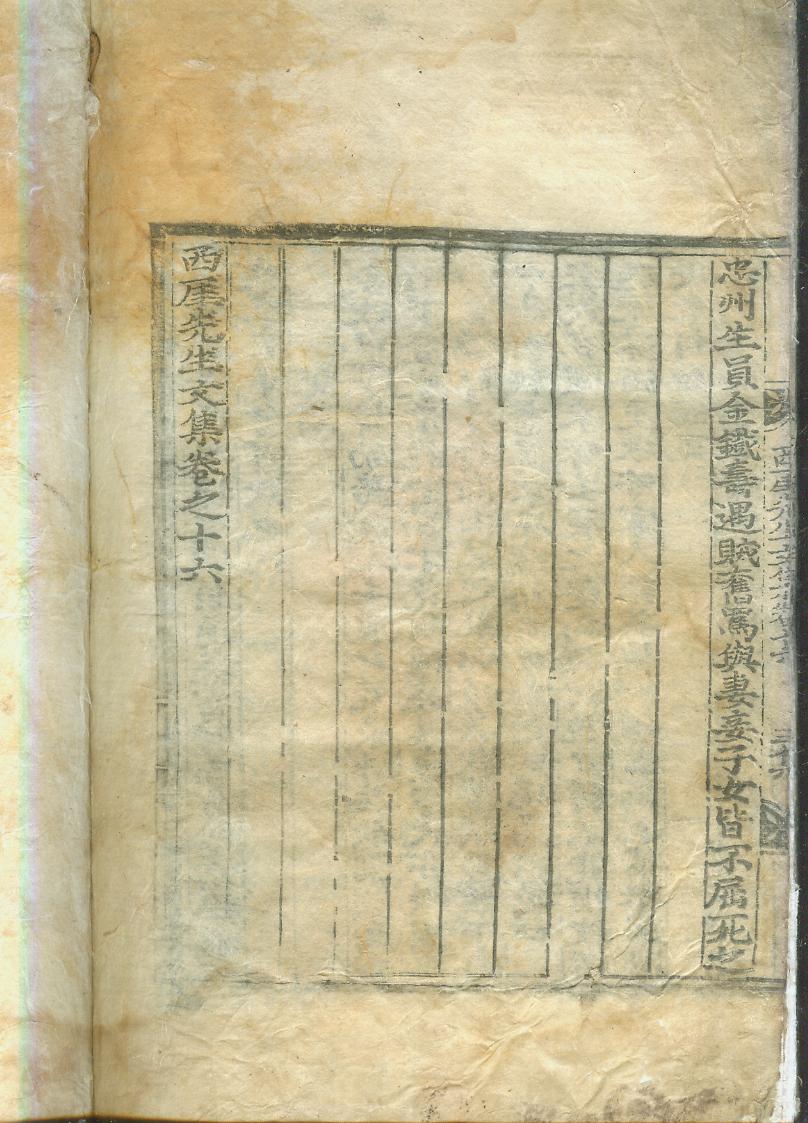 西厓先生文集卷十六
忠州生員金鐵壽遇賊奮罵與妻妾子女皆不屈死之
西厓先生文集卷之十六